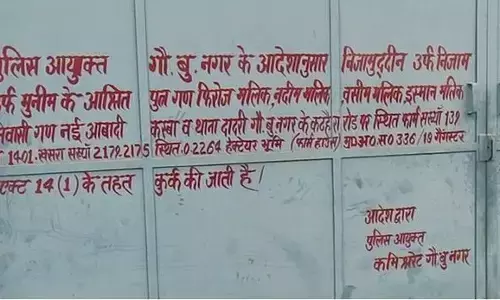 पुलिस आयुक्त गौ. बु. नगर के आदेशानुसार निजामुद्दीन उर्फ निजाम
उर्फ मुनीम के आश्रित पुत्र गण फिरोज मलिक, नदीम मलिक, वसीम मलिक, इस्मान मलिक
निवासी गण नई आबादी कस्बा व थाना दादरी गौ. बु. नगर के कटहेरा रोड पर स्थित फार्म सख्याँ 139
1401, खसरा सख्याँ 2179, 2175 स्थित 0.2264 हेक्टेयर भूमि (फार्म हाउस) मु0अ0स0 336/19 गैंगस्टर
एक्ट 14 (1) के तहत कुर्क की जाती है।
आदेश द्वारा
पुलिस आयुक्त
कमिश्नरेट गौ. बु नगर